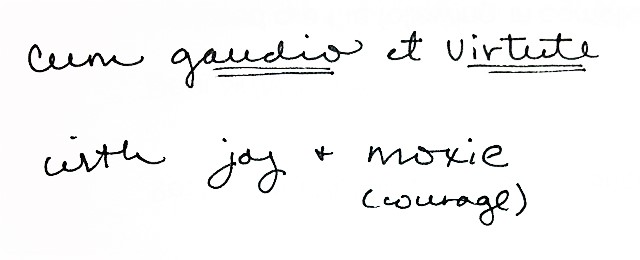 cum gaudio et virtute
with joy + moxie
(courage)